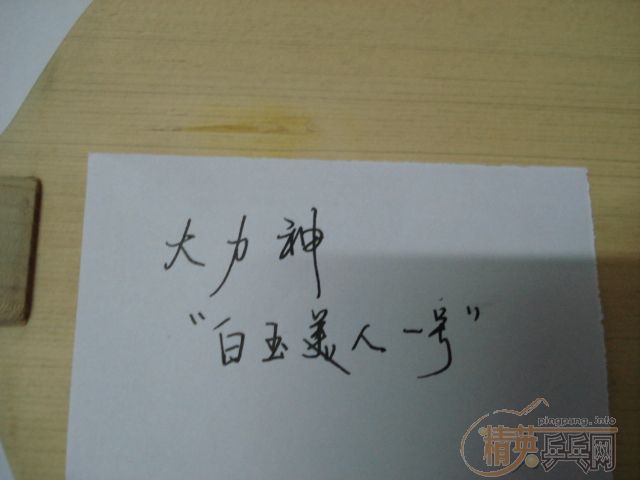 大力神
“白玉美人一号”
pingpung.info
精英乒乓网